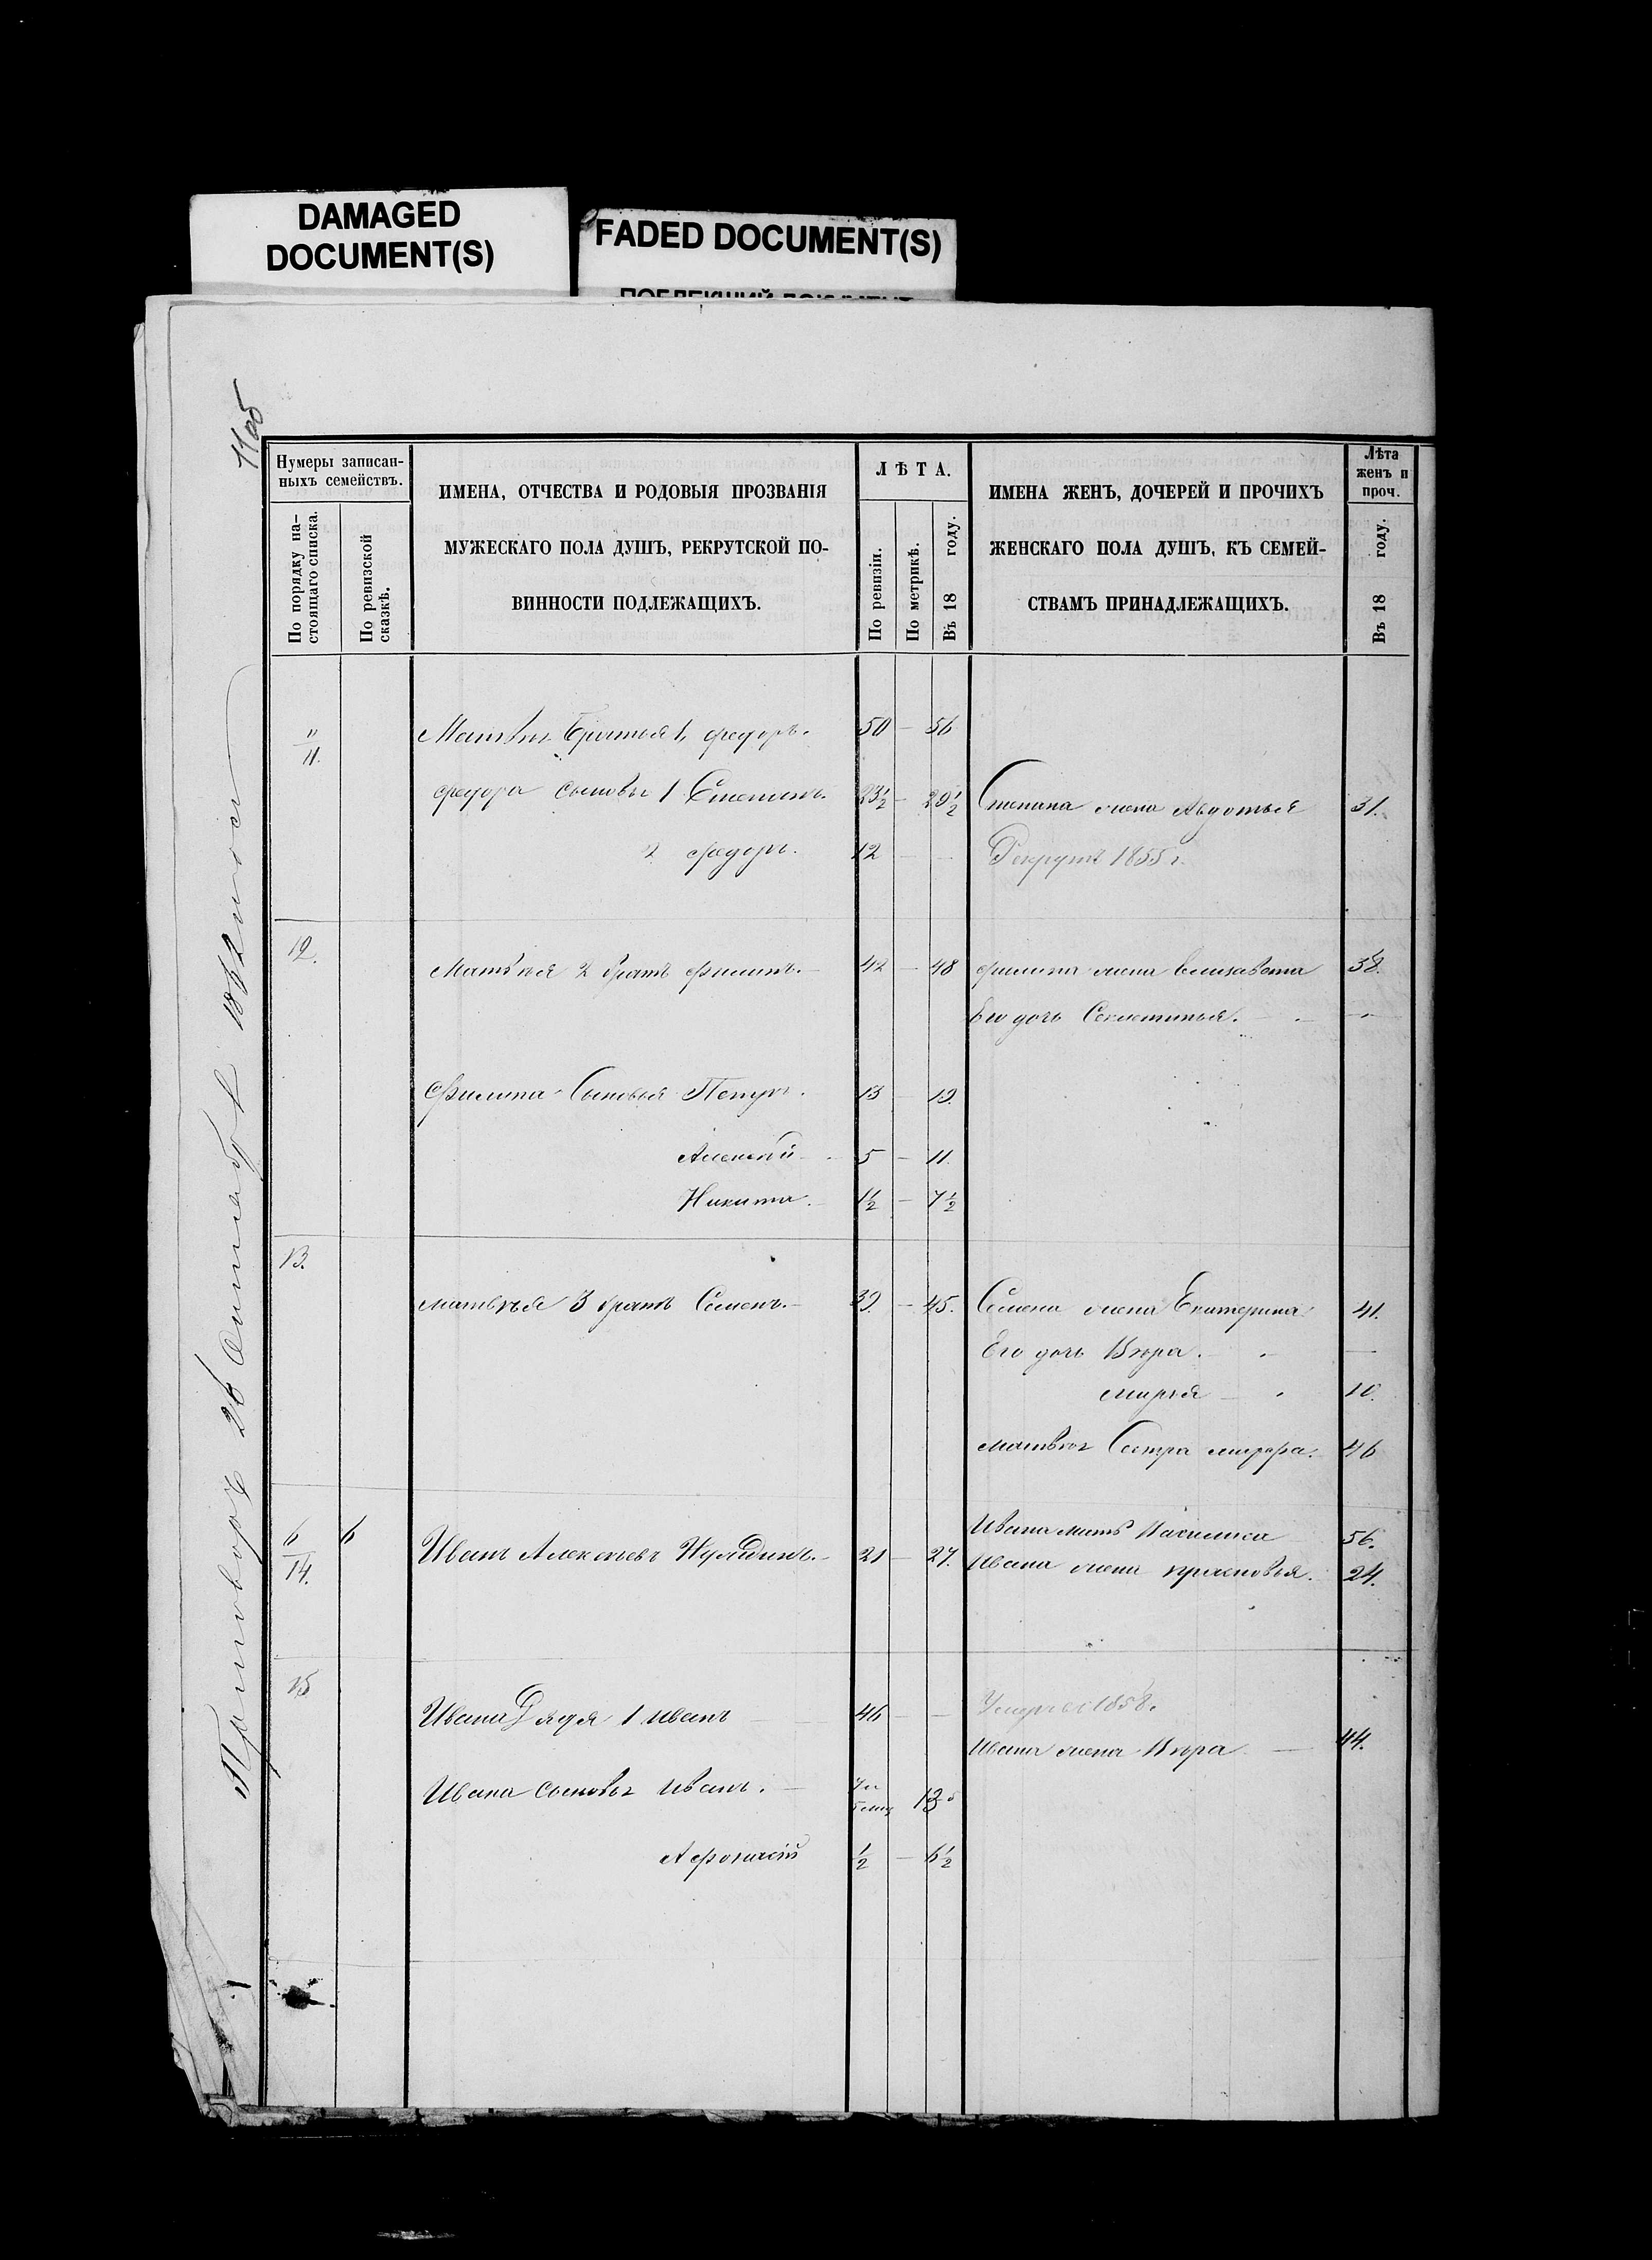 DAMAGED
DOCUMENT(S)
FADED DOCUMENT(S)
11об
Нумеры записан-
ныхъ семействъ.
По порядку на-
стоящаго списка.
По ревизской
сказкѣ.
ИМЕНА, ОТЧЕСТВА И РОДОВЫЯ ПРОЗВАНІЯ
МУЖЕСКАГО ПОЛА ДУШЪ, РЕКРУТСКОЙ ПО-
ВИННОСТИ ПОДЛЕЖАЩИХЪ.
ЛѢТА.
По ревизіи.
По метрикѣ.
Въ 18 году.
ИМЕНА ЖЕНЪ, ДОЧЕРЕЙ И ПРОЧИХЪ
ЖЕНСКАГО ПОЛА ДУШЪ, КЪ СЕМЕЙ-
СТВАМЪ ПРИНАДЛЕЖАЩИХЪ.
Лѣта
женъ и
проч.
Въ 18 году.
" 11. Братья 1, федоръ. 50 — 56
федора сыновья 1 Степанъ. 23½ — 29½ Степана жена Авдотья 31.
2 федоръ. 12 — — Рекрутъ 1855 г.
12. Матвѣя 2 братъ филипъ. — 42 — 48 филипа жена елизавета 38.
Его дочь Секлетинья. — —
Филипа Сыновья Петръ. 13 19.
Алексѣй 5 — 11.
Никита. 1½ — 7½
13.
матвѣя 3 братъ Семенъ. — 39. — 45. Семена жена Екатерина 41.
Его дочь Вѣра. —
марья 10.
Сестра 46
6 14. 6 Иванъ Алексѣевъ 21 — 27. Ивана мать 56.
Ивана жена 24.
15
Ивана Дядя 1 иванъ 46 — — Умеръ 1858.
Ивана жена Вѣра — 44.
Ивана сыновья иванъ. —
Афонасій ½ — 6½